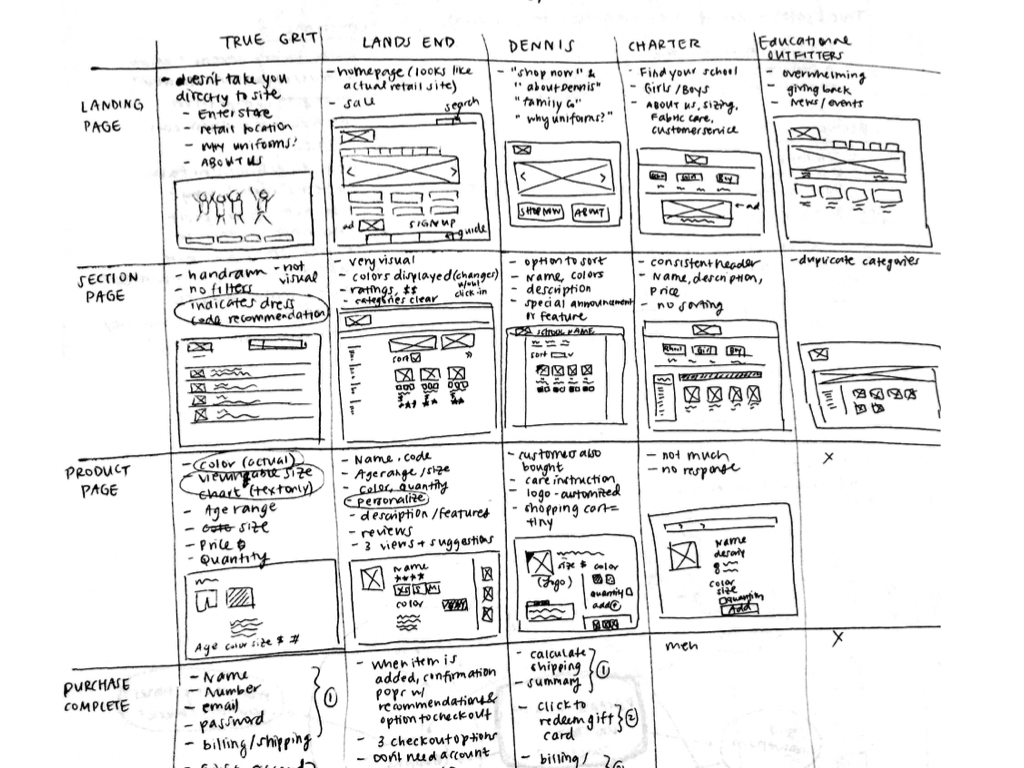 TRUE GRIT
LANDS END
DENNIS
CHARTER
Educational
OUTFITTERS
LANDING
PAGE
- doesn't take you
directly to site
- Enter store
- retail location
- why uniforms?
- ABOUT US
- homepage (looks like
actual retail site)
- sale
search
ad
SIGN UP
guide
- "shop now" &
"about Dennis"
"family
"why uniforms?"
SHOP NOW
ABOUT
- Find your school
- Girls/Boys
- ABOUT US, sizing,
Fabric care,
customer service
Girl
Boy
ad
- overwhelming
- giving back
- News/events
SECTION
PAGE
- handrawn - not
visual
- no filters
indicates dress
code recommendation
- very visual
- colors displayed (changes)
w/out
click-in
- ratings, $$
- categories clear
sort
- option to sort
- Name, colors
- description
- special announcement
or feature
SCHOOL NAME
sort
- consistent header
- Name, description,
Price
- no sorting
School
Girl
Boy
- duplicate categories
PRODUCT
PAGE
- color (actual)
- viewingable size
chart (text only)
- Age range
- size
- Price $
- Quantity
Age color size $ #
- Name, code
- Age range/size
- color, quantity
- personalize
- description/features
- reviews
- 3 views + suggestions
Name
XS S M
color
- customers also
bought
- care instruction
- logo - automized
- shopping cart =
tiny
size $ color
(logo)
quantity
add
- not much
- no response
Name
color
size
quantity
Add
X
PURCHASE
COMPLETE
- Name
- Number
- email
- password
- billing/shipping
1
- when item is
added, confirmation
pops w/
recommendations &
option to checkout
- 3 checkout options
- Dont need account
- calculate
shipping
- summary
1
- click to
redeem gift
card
2
- billing/
meh
X